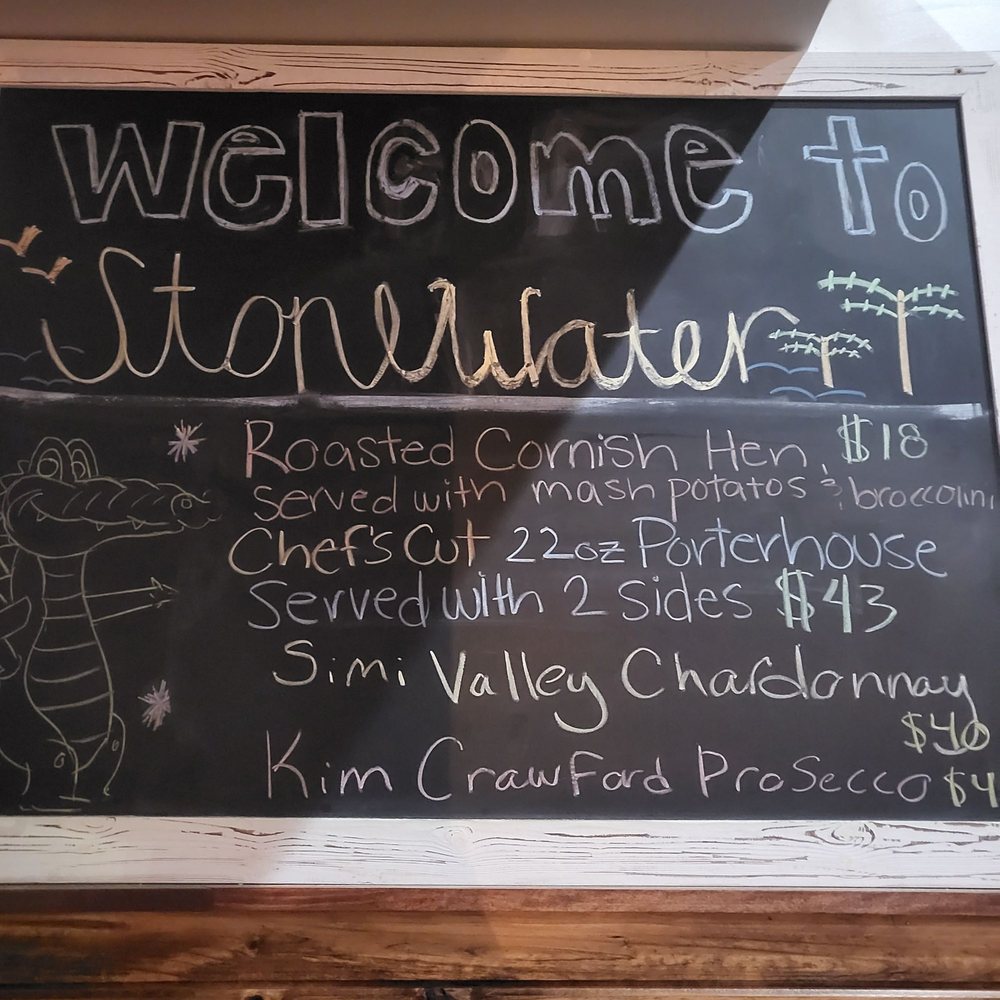 Welcome to
Stonewater
Roasted Cornish Hen, $18
Served with mash potatos & broccolini
Chef's Cut 22oz Porterhouse
Served with 2 sides $43
Simi Valley Chardonnay
$40
Kim Crawford Prosecco $4